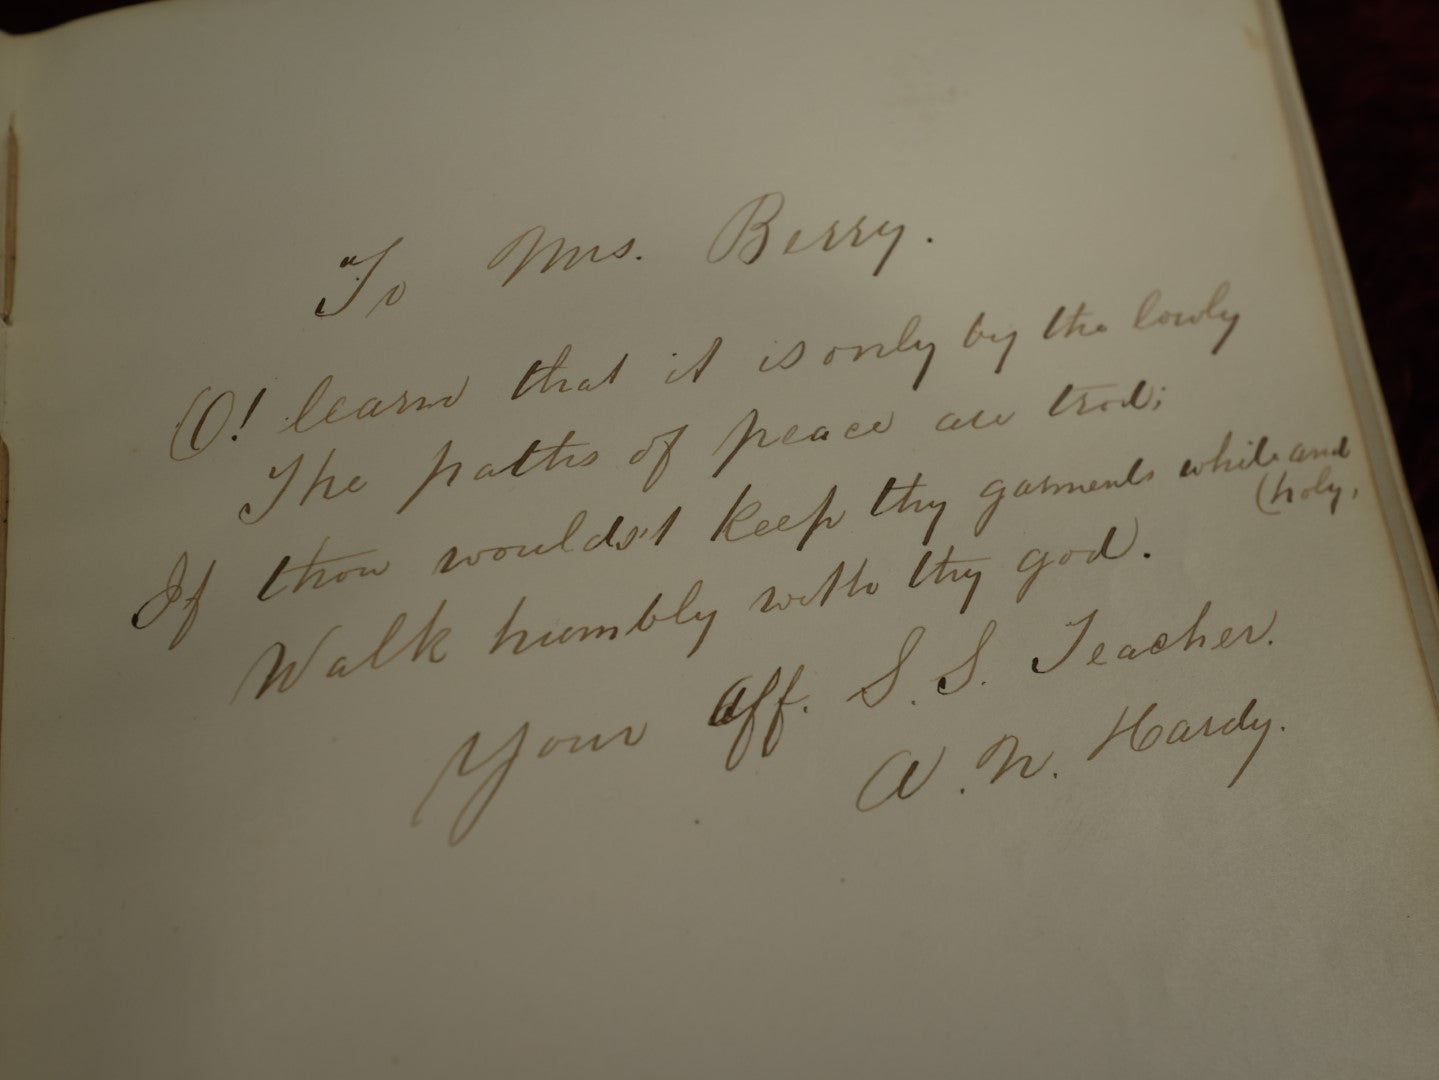 To Mrs. Berry.
O! learn that it is only by the lowly
The paths of peace are trod;
If thou wouldst keep thy garments white and
(holy,
Walk humbly with thy god.
Your Aff. S. S. Teacher.
A. N. Hardy.